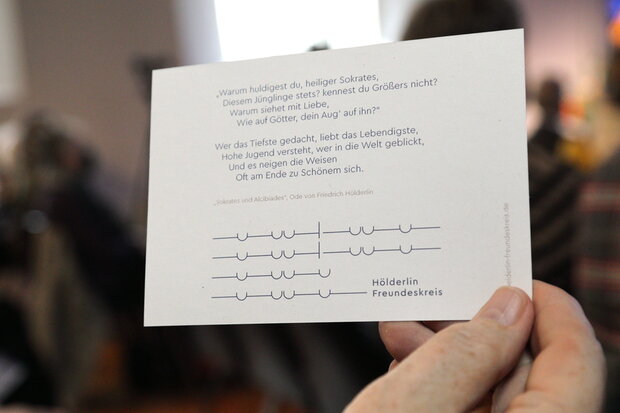 „Warum huldigest du, heiliger Sokrates,
Diesem Jünglinge stets? kennest du Größers nicht?
Warum siehet mit Liebe,
Wie auf Götter, dein Aug' auf ihn?“
Wer das Tiefste gedacht, liebt das Lebendigste,
Hohe Jugend versteht, wer in die Welt geblickt,
Und es neigen die Weisen
Oft am Ende zu Schönem sich.
„Sokrates und Alcibiades“, Ode von Friedrich Hölderlin
Hölderlin
Freundeskreis
elderlin-freundeskreis.de